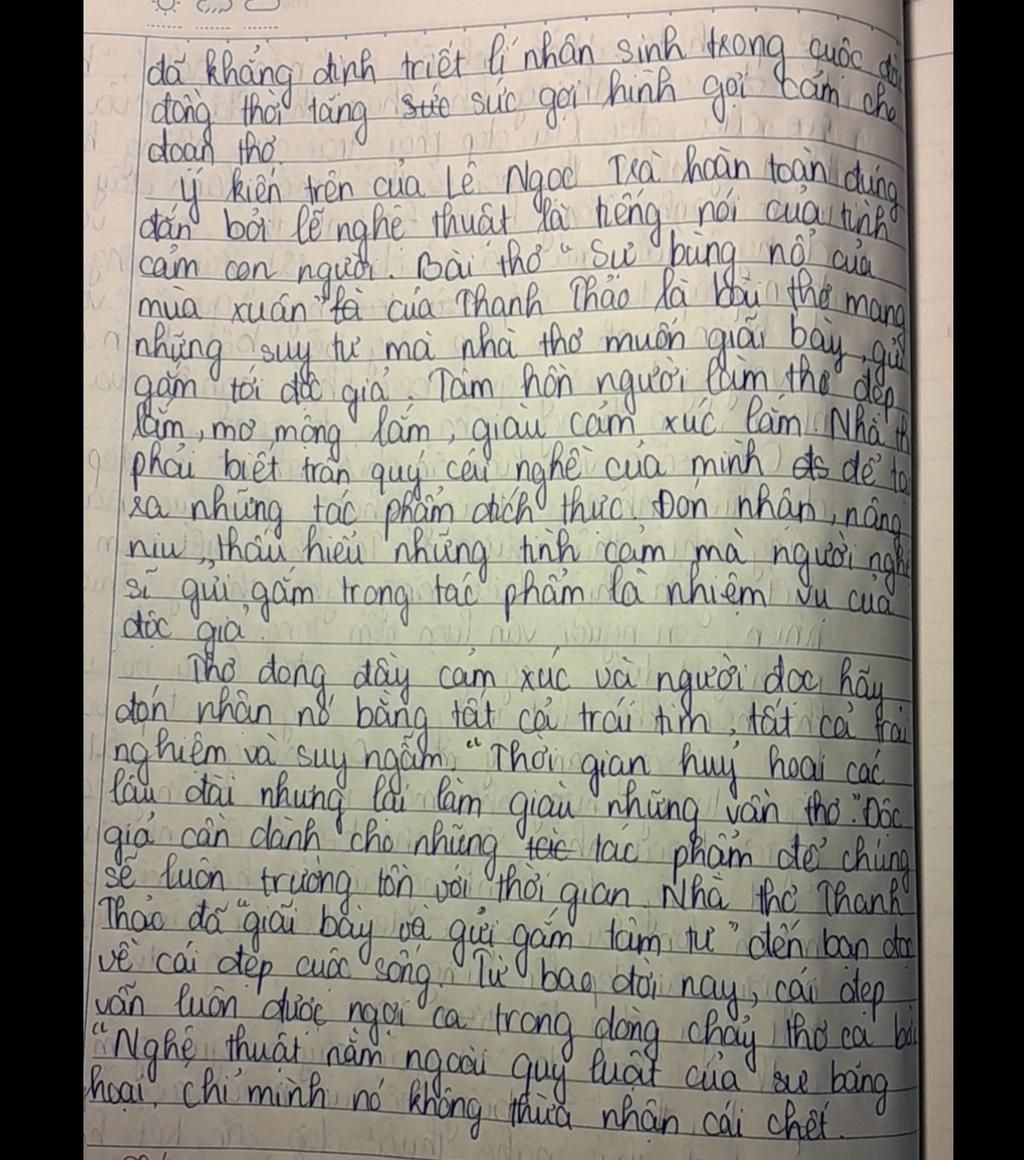 đã khẳng định triết lí nhân sinh trong cuộc đời
đồng thời tăng sức sức gợi hình gợi cảm cho
đoạn thơ.
Ý kiến trên của Lê Ngọc Trà hoàn toàn đúng
đắn bởi lẽ nghệ thuật là tiếng nói của tình
cảm con người. Bài thơ “Sự bùng nổ của
mùa xuân” là của Thanh Thảo là bài thơ mang
những suy tư mà nhà thơ muốn giãi bày, gửi
gắm tới độc giả. Tâm hồn người làm thơ đẹp
lắm, mơ mộng lắm, giàu cảm xúc lắm. Nhà th
phải biết trân quý cái nghề của mình để tạ
ra những tác phẩm đích thực. Đón nhận, nâng
niu, thấu hiểu những tình cảm mà người ngh
sĩ gửi gắm trong tác phẩm là nhiệm vụ của
độc giả.
Thơ dong đầy cảm xúc và người đọc hãy
đón nhận nó bằng tất cả trái tim, tất cả trải
nghiệm và suy ngẫm. “Thời gian huỷ hoại các
lâu đài nhưng lại làm giàu những vần thơ”. Độc
giả cần dành cho những tác tác phẩm để chúng
sẽ luôn trường tồn với thời gian. Nhà thơ Thanh
Thảo đã “giãi bày và gửi gắm tâm tư” đến bạn đọc
về cái đẹp cuộc sống. Từ bao đời nay, cái đẹp
vẫn luôn được ngợi ca trong dòng chảy thơ ca bởi
“Nghệ thuật nằm ngoài quy luật của sự băng
hoại, chỉ mình nó không thừa nhận cái chết.